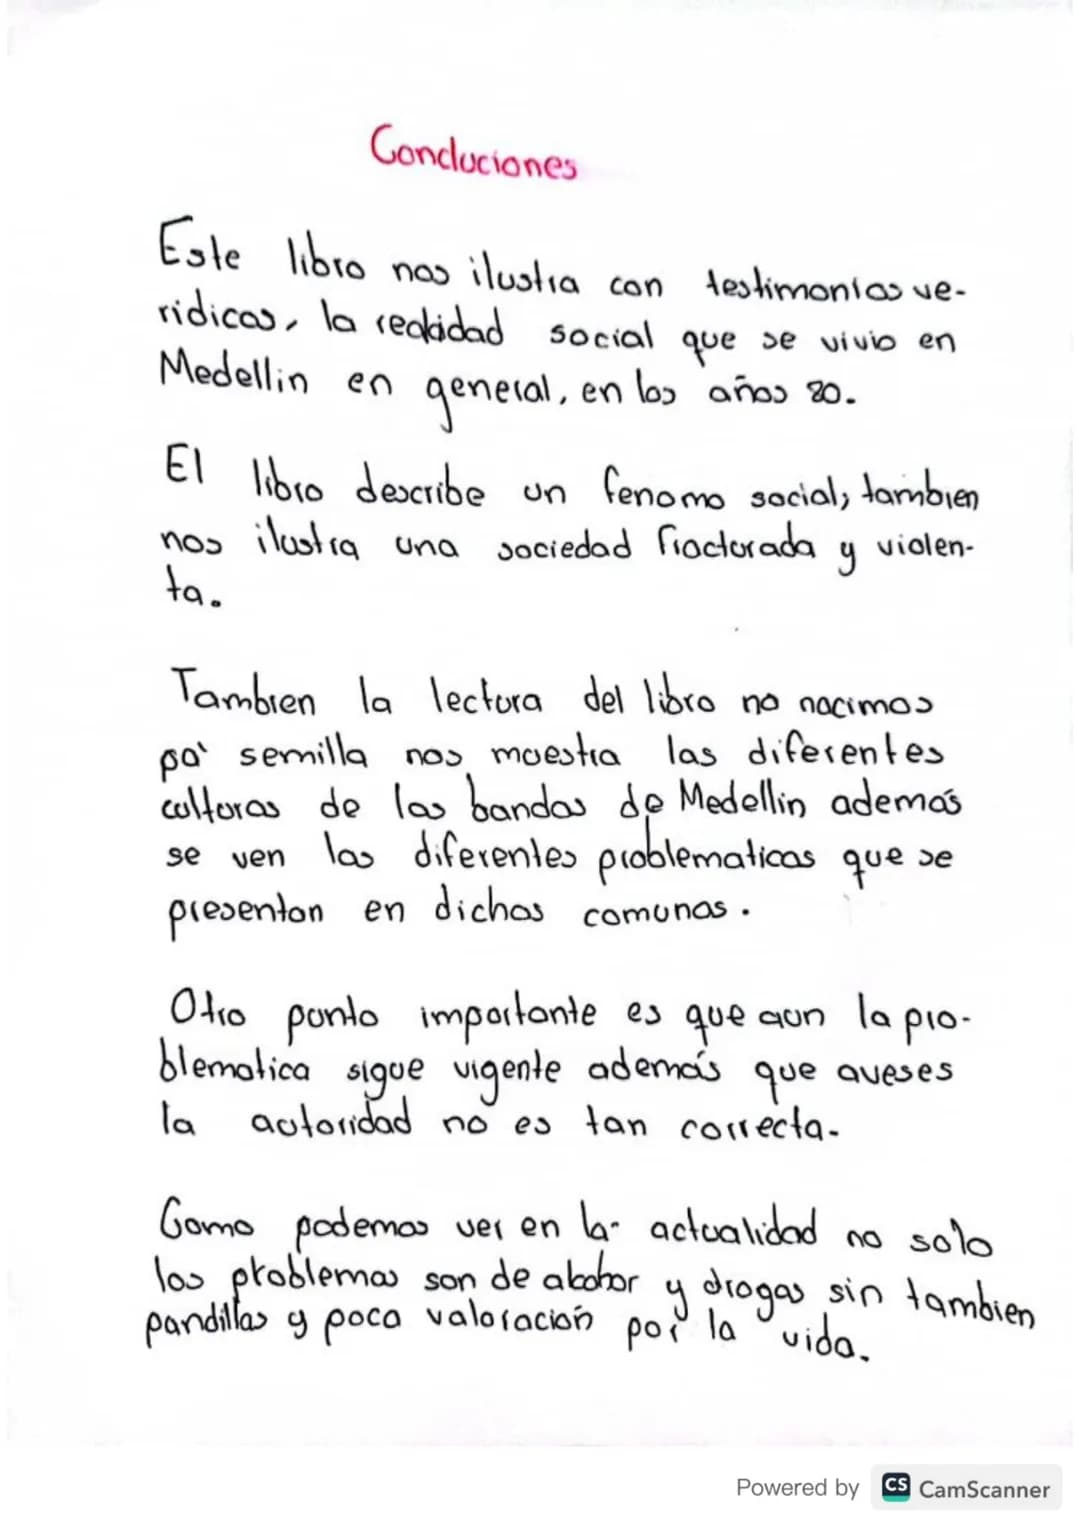 Concluciones
Este libro nos ilustra con testimonios ve-
ridicos, la realidad social que se vivio en
Medellin en general, en los años 80.
El libro describe un fenomo social, tambien
nos ilustra una sociedad fracturada y violen-
ta.
Tambien la lectura del libro no nacimos
pa' semilla nos muestra las diferentes
culturas de las bandas de Medellin ademas
se ven las diferentes problematicas que se
presentan en dichas comunas.
Otro punto importante es que aun la pro-
blematica sigue vigente además que aveses
la autoridad no es tan correcta.
Como podemos ver en la actualidad no solo
los problemas son de alcohor y drogas sin tambien
pandillas y poca valoración por la vida.
Powered by CS CamScanner